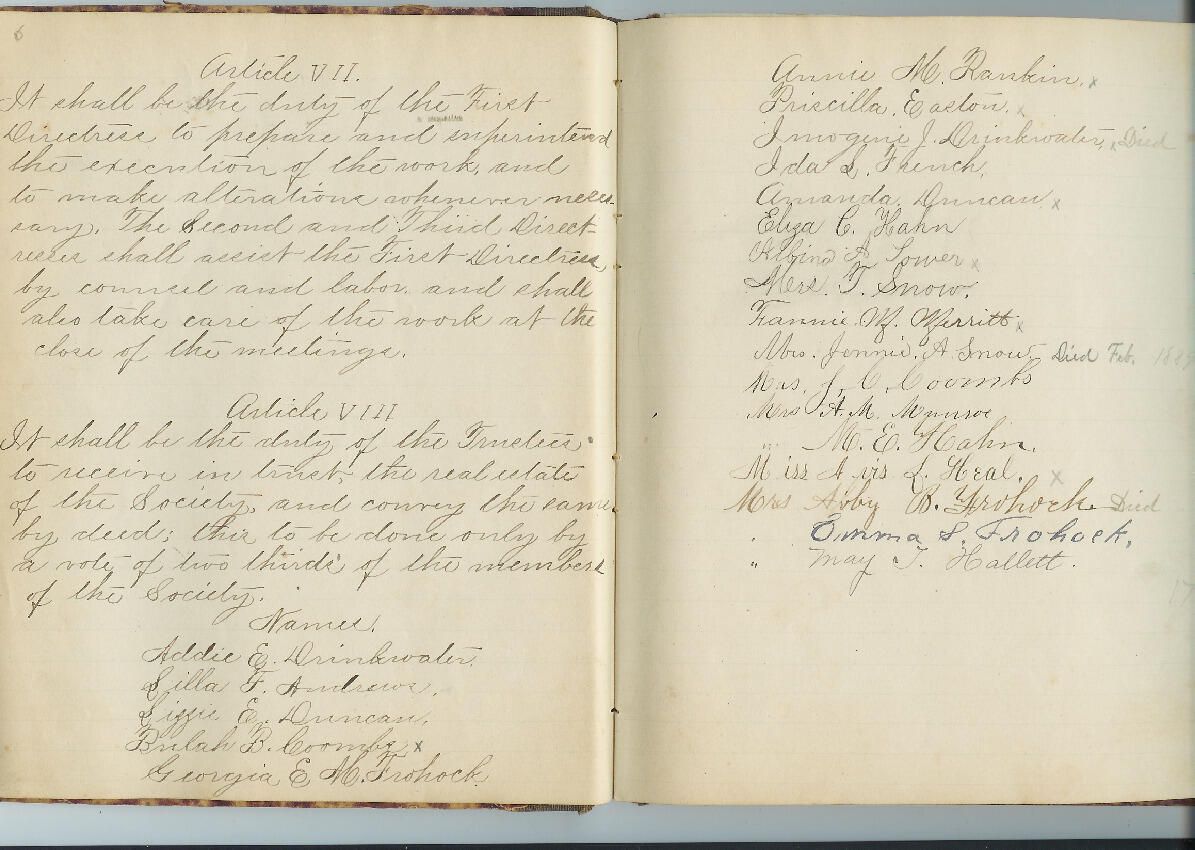 6
Article VII.
It shall be the duty of the First
Directress to prepare and superintend
the execution of the work, and
to make alterations whenever neces-
sary. The Second and Third Direct-
resses shall assist the First Directress,
by counsel and labor, and shall
also take care of the work at the
close of the meetings.
Article VIII
It shall be the duty of the Trustees
to receive in trust, the real estate
of the Society, and convey the same
by deed; this to be done only by
a vote of two thirds of the members
of the Society.
Names.
Addie E. Drinkwater.
Lilla F. Andrews.
Lizzie E. Duncan.
Bulah B. Coombs x
Georgia E. M. Frohock.
Annie M. Rankin. x
Priscilla Easton. x
Imogene J. Drinkwater. x Died
Ida L. French.
Amanda Duncan x
Eliza C. Hahn
Albina A. Tower x
Mrs. T. Snow.
Fannie M. Merritt x
Mrs. Jennie A Snow Died Feb. 188
Mrs. J. C. Coombs
Mrs A. M. Munroe
" M. E. Hahn.
Miss Avis L. Heal. x
Mrs Abby B. Frohock. Died
" Emma S. Frohock.
" May T. Hallett.
17